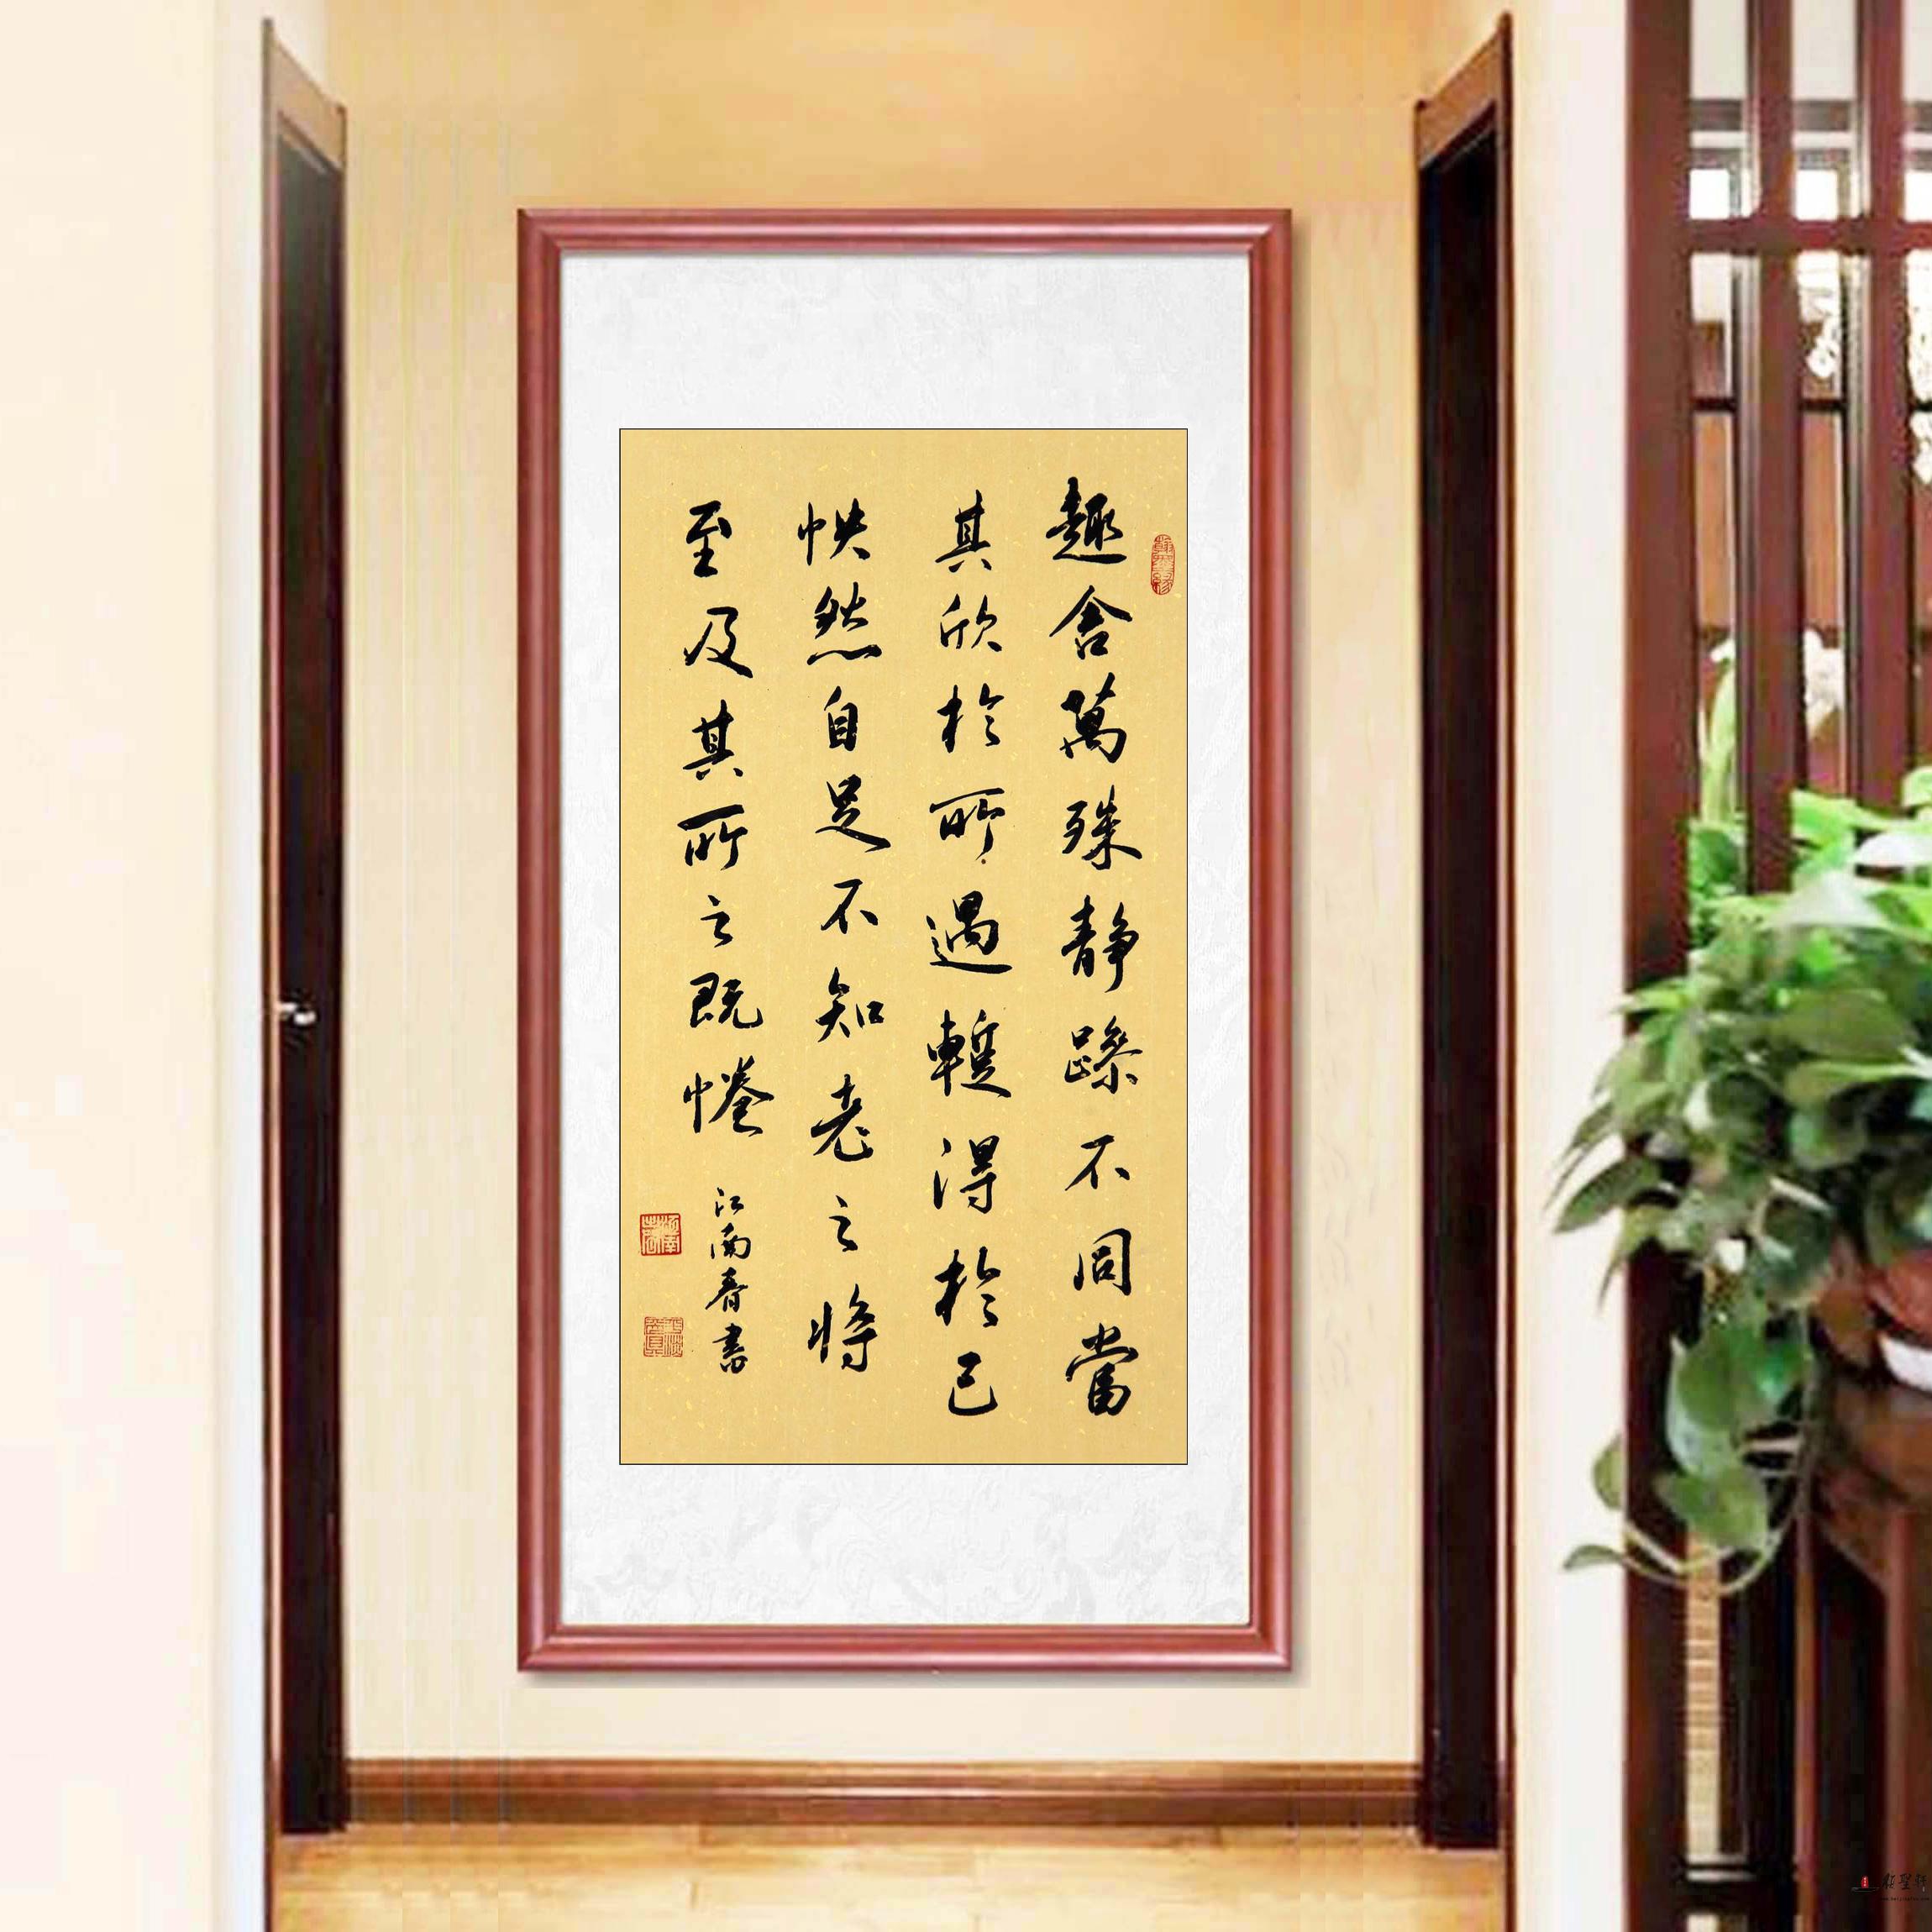 趣舍萬殊静躁不同當
其欣於所遇暫得於己
怏然自足不知老之將
至及其所之既惓
江南春書